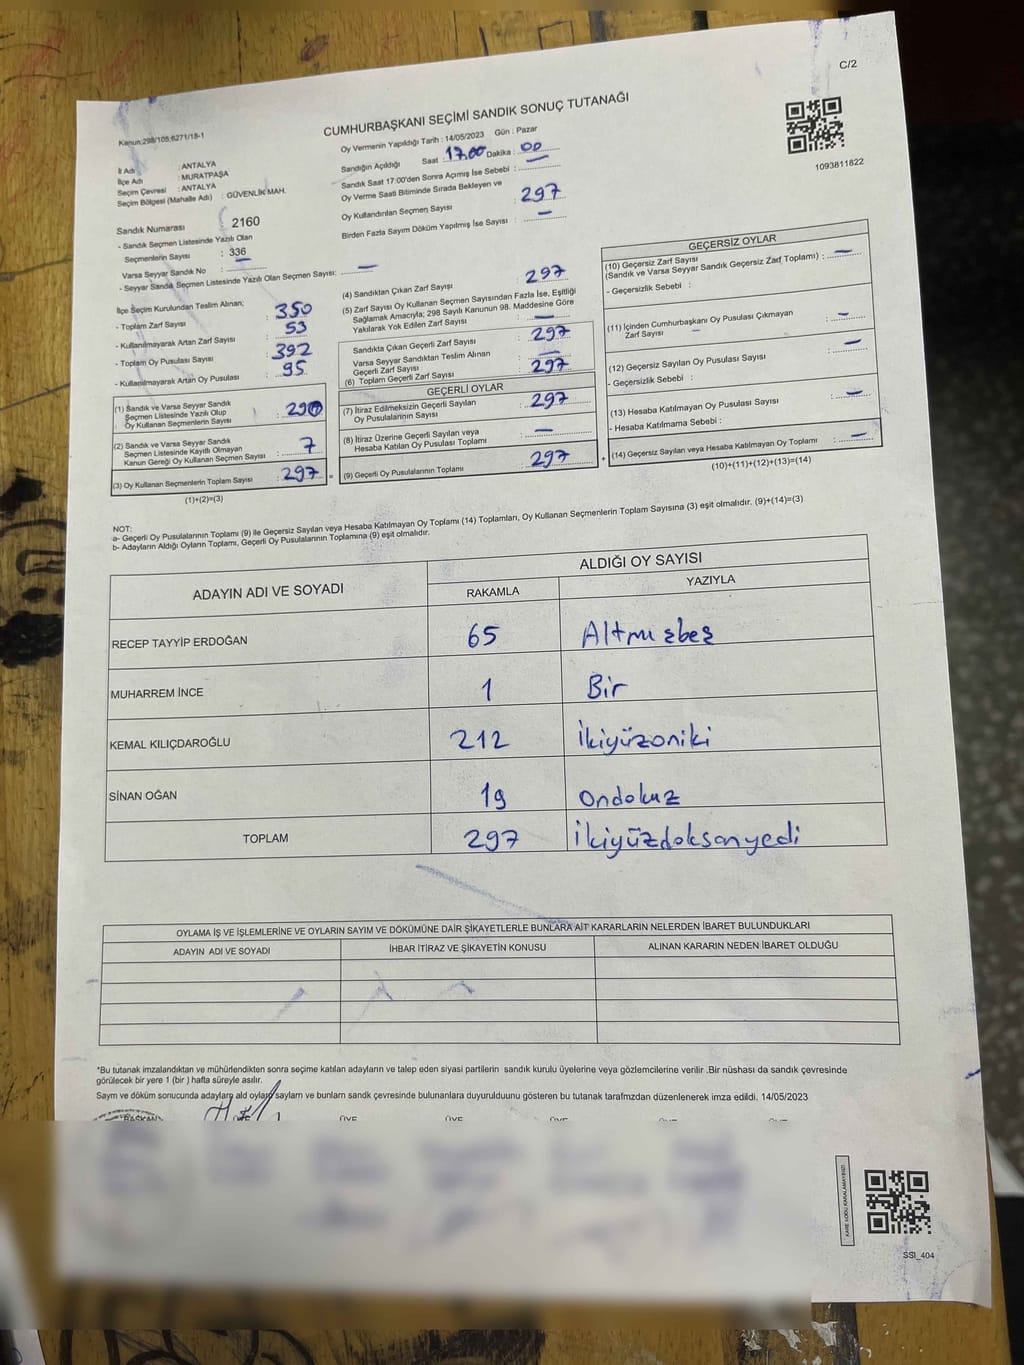 C/2
Kanun:298/105;6271/18-1
CUMHURBAŞKANI SEÇİMİ SANDIK SONUÇ TUTANAĞI
1093811822
İl Adı : ANTALYA
İlçe Adı : MURATPAŞA
Seçim Çevresi : ANTALYA
Seçim Bölgesi (Mahalle Adı) : GÜVENLİK MAH.
Oy Vermenin Yapıldığı Tarih : 14/05/2023 Gün : Pazar
Sandığın Açıldığı Saat : 17.00 Dakika : 00
Sandık Saat 17:00'den Sonra Açımış İse Sebebi : —
Oy Verme Saati Bitiminde Sırada Bekleyen ve
Oy Kullandırılan Seçmen Sayısı : 297
Birden Fazla Sayım Döküm Yapılmış İse Sayısı : —
Sandık Numarası 2160
- Sandık Seçmen Listesinde Yazılı Olan
Seçmenlerin Sayısı : 336
Varsa Seyyar Sandık No : —
- Seyyar Sandık Seçmen Listesinde Yazılı Olan Seçmen Sayısı: —
İlçe Seçim Kurulundan Teslim Alınan;
- Toplam Zarf Sayısı : 350
- Kullanılmayarak Artan Zarf Sayısı : 53
- Toplam Oy Pusulası Sayısı : 392
- Kullanılmayarak Artan Oy Pusulası : 95
(1) Sandık ve Varsa Seyyar Sandık
Seçmen Listesinde Yazılı Olup
Oy Kullanan Seçmenlerin Sayısı : 290
(2) Sandık ve Varsa Seyyar Sandık
Seçmen Listesinde Kayıtlı Olmayan
Kanun Gereği Oy Kullanan Seçmen Sayısı : 7
(3) Oy Kullanan Seçmenlerin Toplam Sayısı : 297 =
(1)+(2)=(3)
(4) Sandıktan Çıkan Zarf Sayısı : 297
(5) Zarf Sayısı Oy Kullanan Seçmen Sayısından Fazla İse, Eşitliği
Sağlamak Amacıyla; 298 Sayılı Kanunun 98. Maddesine Göre
Yakılarak Yok Edilen Zarf Sayısı : —
Sandıkta Çıkan Geçerli Zarf Sayısı : 297
Varsa Seyyar Sandıktan Teslim Alınan
Geçerli Zarf Sayısı : —
(6) Toplam Geçerli Zarf Sayısı : 297
GEÇERLİ OYLAR
(7) İtiraz Edilmeksizin Geçerli Sayılan
Oy Pusulalarının Sayısı : 297
(8) İtiraz Üzerine Geçerli Sayılan veya
Hesaba Katılan Oy Pusulası Toplamı : —
(9) Geçerli Oy Pusulalarının Toplamı : 297 +
GEÇERSİZ OYLAR
(10) Geçersiz Zarf Sayısı
(Sandık ve Varsa Seyyar Sandık Geçersiz Zarf Toplamı) : —
- Geçersizlik Sebebi :
(11) İçinden Cumhurbaşkanı Oy Pusulası Çıkmayan
Zarf Sayısı : —
(12) Geçersiz Sayılan Oy Pusulası Sayısı : —
- Geçersizlik Sebebi :
(13) Hesaba Katılmayan Oy Pusulası Sayısı : —
- Hesaba Katılmama Sebebi :
(14) Geçersiz Sayılan veya Hesaba Katılmayan Oy Toplamı : —
(10)+(11)+(12)+(13)=(14)
NOT:
a- Geçerli Oy Pusulalarının Toplamı (9) ile Geçersiz Sayılan veya Hesaba Katılmayan Oy Toplamı (14) Toplamları, Oy Kullanan Seçmenlerin Toplam Sayısına (3) eşit olmalıdır. (9)+(14)=(3)
b- Adayların Aldığı Oyların Toplamı, Geçerli Oy Pusulalarının Toplamına (9) eşit olmalıdır.
ADAYIN ADI VE SOYADI ALDIĞI OY SAYISI
RAKAMLA YAZIYLA
RECEP TAYYİP ERDOĞAN 65 Altmışbeş
MUHARREM İNCE 1 Bir
KEMAL KILIÇDAROĞLU 212 İkiyüzoniki
SİNAN OĞAN 19 Ondokuz
TOPLAM 297 İkiyüzdoksanyedi
OYLAMA İŞ VE İŞLEMLERİNE VE OYLARIN SAYIM VE DÖKÜMÜNE DAİR ŞİKAYETLERLE BUNLARA AİT KARARLARIN NELERDEN İBARET BULUNDUKLARI
ADAYIN ADI VE SOYADI İHBAR İTİRAZ VE ŞİKAYETİN KONUSU ALINAN KARARIN NEDEN İBARET OLDUĞU
*Bu tutanak imzalandıktan ve mühürlendikten sonra seçime katılan adayların ve talep eden siyasi partilerin sandık kurulu üyelerine veya gözlemcilerine verilir .Bir nüshası da sandık çevresinde
görülecek bir yere 1 (bir ) hafta süreyle asılır.
Sayım ve döküm sonucunda adayların ald oyların sayların ve bunların sandık çevresinde bulunanlara duyurulduunu gösteren bu tutanak tarafmzdan düzenlenerek imza edildi. 14/05/2023
BAŞKAN ÜYE ÜYE ÜYE
KARE KODU KARALAMAYINIZ!
SSI_404